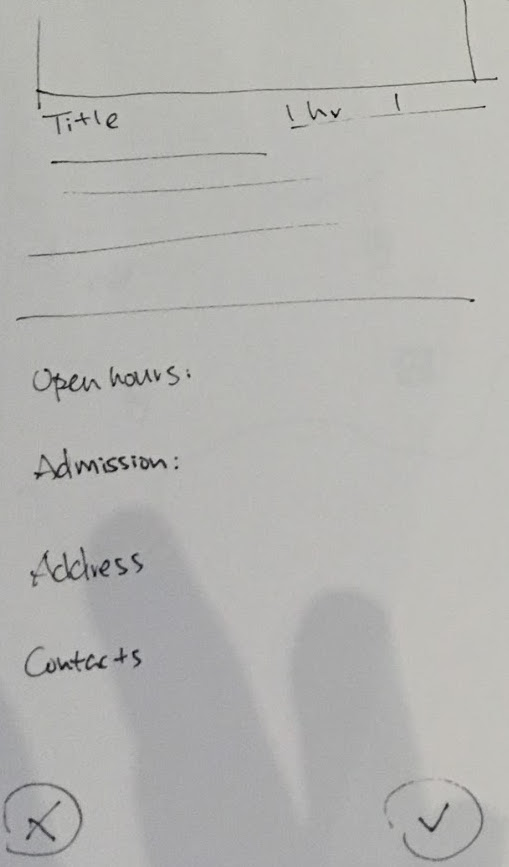 Title 1 hr
Open hours:
Admission:
Address
Contacts